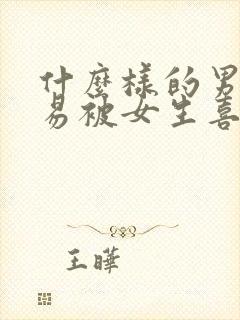 什麼樣的男
易被女生喜
王曄